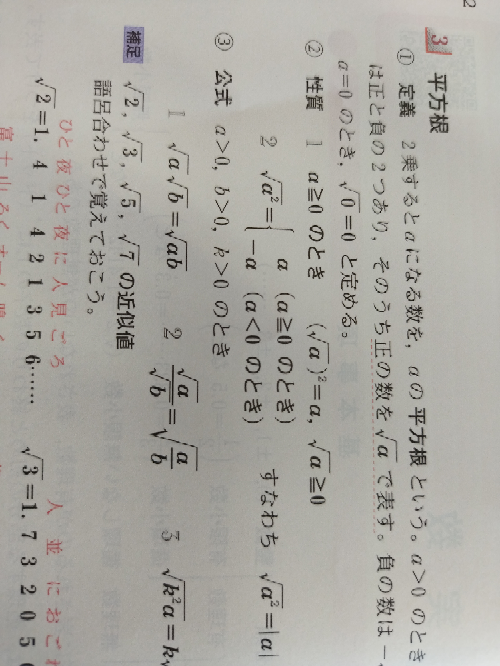 3 平方根
① 定義 2乗するとaになる数を，aの平方根という。a>0 のとき
は正と負の2つあり，そのうち正の数を √a で表す。負の数は −
a=0 のとき，√0=0 と定める。
② 性質 1 a≧0 のとき (√a)²=a, √a≧0
2 √a²={ a (a≧0 のとき)
−a (a<0 のとき) すなわち √a²=|a|
③ 公式 a>0, b>0, k>0 のとき
1 √a√b=√ab 2 √a/√b=√(a/b) 3 √k²a=k√
補足 √2, √3, √5, √7 の近似値
語呂合わせで覚えておこう。
ひと夜ひと夜に人見ごろ 人並におごれ
√2=1.41421356…… √3=1.732050
富士山ろくオーム鳴く